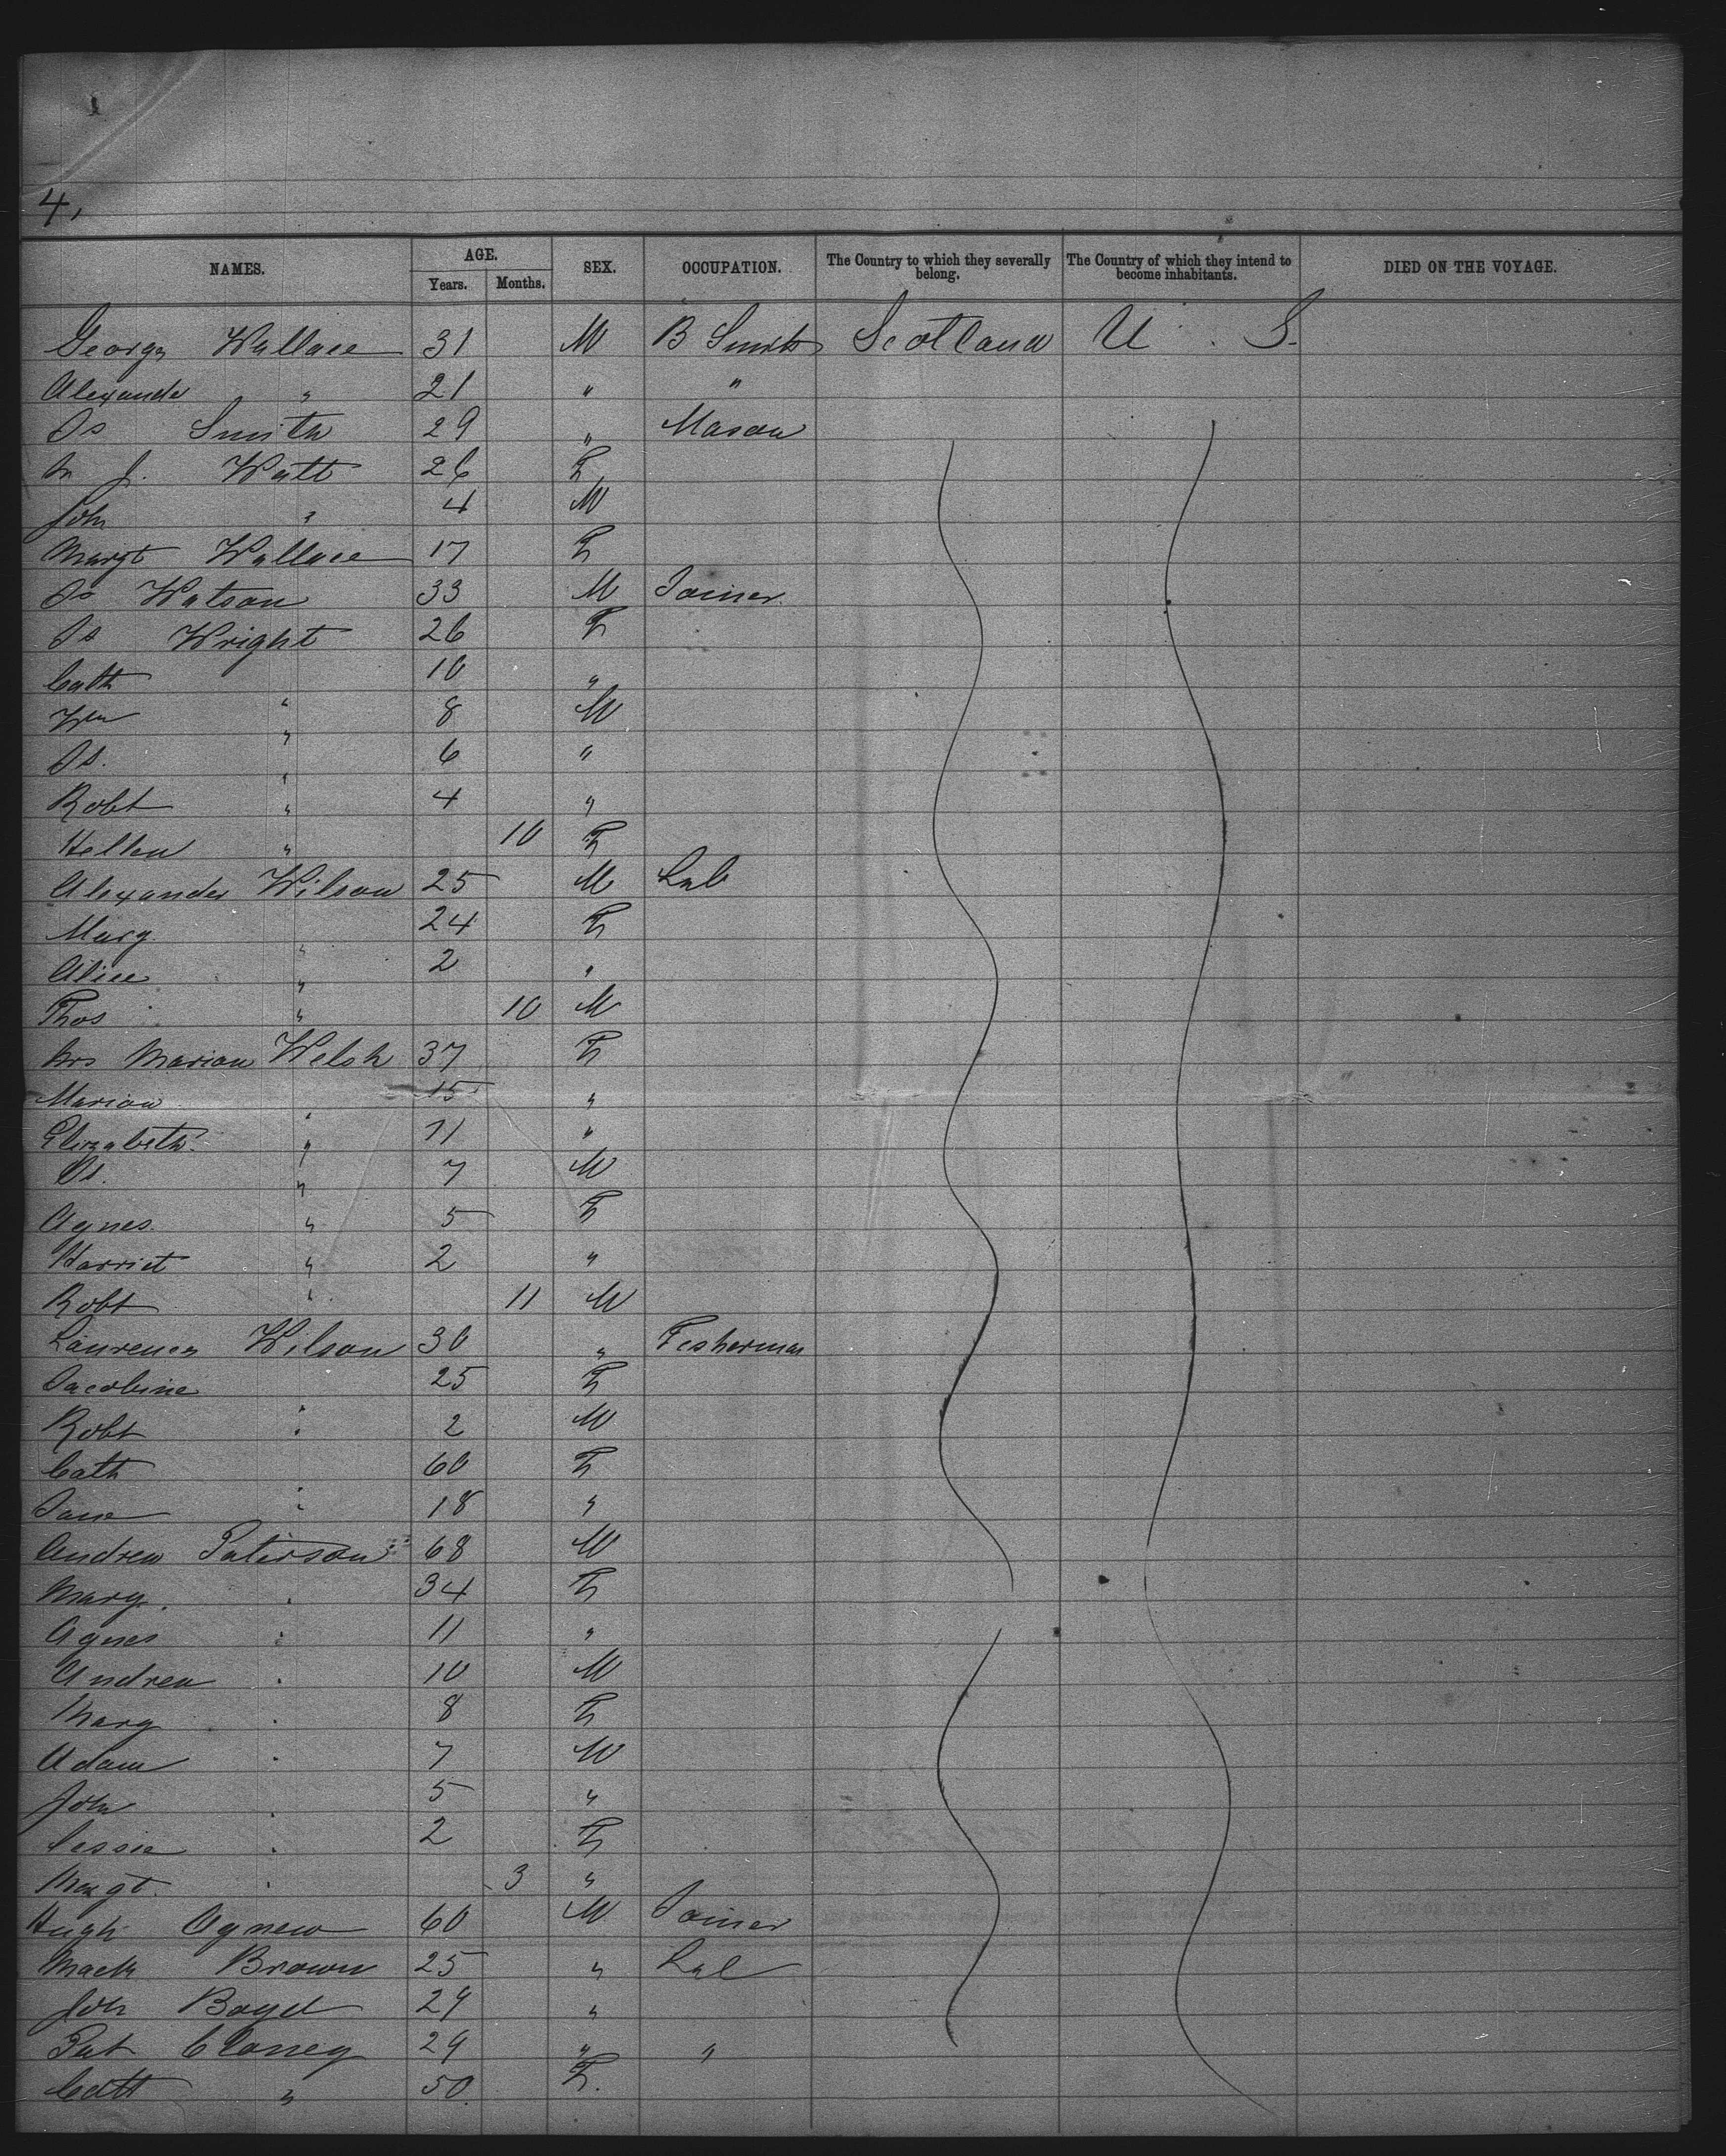 4,
NAMES. AGE. SEX. OCCUPATION. The Country to which they severally belong. The Country of which they intend to become inhabitants. DIED ON THE VOYAGE.
Years. Months.
George Wallace 31 M B Smith Scotland U . S.
Alexander " 21 " "
Js Smith 29 " Mason
J. Watt 26 F
John " 4 M
Margt Wallace 17 F
Js Watson 33 M Joiner
Js Wright 26 F
Cath " 10 "
Wm " 8 M
Js. " 6 "
Robt " 4 "
Hellen " 10 F
Alexander Wilson 25 M Lab
Mary " 24 F
Alice " 2 "
Thos " 10 M
Mrs Marion Welsh 37 F
Marion " 15 "
Elizabeth " 11 "
Js. " 7 M
Agnes " 5 F
Harriet " 2 "
Robt " 11 M
Laurence Wilson 30 " Fisherman
Jacobine " 25 F
Robt " 2 M
Cath 60 F
Jane " 18 "
Andrew Paterson 68 M
Mary. " 34 F
Agnes " 11 "
Andrew " 10 M
Mary " 8 F
Adam " 7 M
John " 5 "
Cessie " 2 F
Margt. " 3 "
Hugh Agnew 60 M Joiner
Mack Brown 25 " Lab
John Boyd 29 "
Pat Clancy 29 " "
Cath " 50 F.